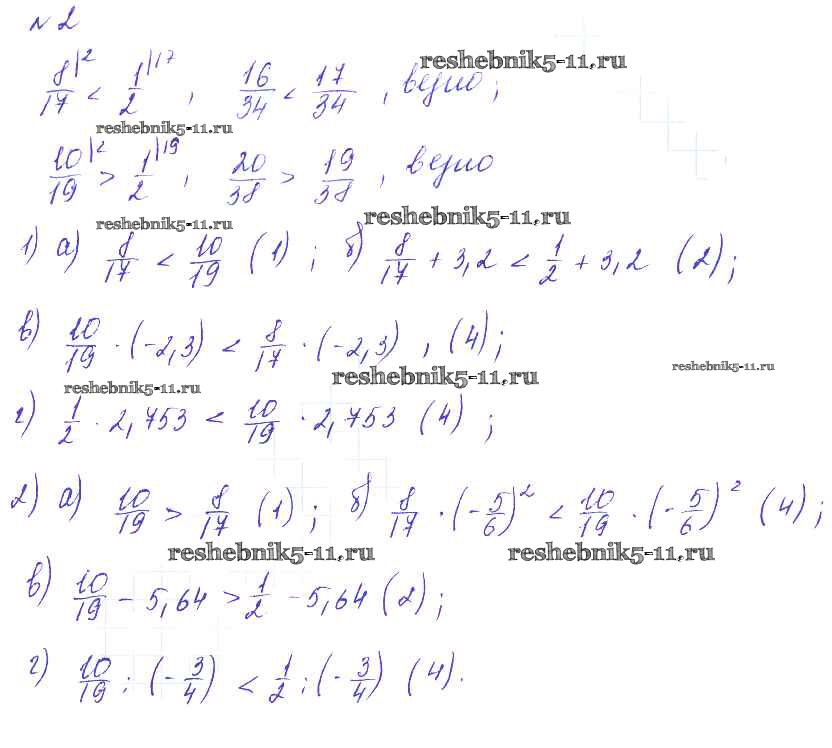 № 2
8/17 |2 < 1/2 |17 , 16/34 < 17/34 , верно;
reshebnik5-11.ru
reshebnik5-11.ru
10/19 |2 > 1/2 |19 , 20/38 > 19/38 , верно
reshebnik5-11.ru
reshebnik5-11.ru
1) а) 8/17 < 10/19 (1) ; б) 8/17 + 3,2 < 1/2 + 3,2 (2) ;
в) 10/19 · (-2,3) < 8/17 · (-2,3) , (4) ;
reshebnik5-11.ru
reshebnik5-11.ru
reshebnik5-11.ru
г) 1/2 · 2,753 < 10/19 · 2,753 (4) ;
2) а) 10/19 > 8/17 (1) ; б) 8/17 · (-5/6)² < 10/19 · (-5/6)² (4) ;
reshebnik5-11.ru
reshebnik5-11.ru
в) 10/19 - 5,64 > 1/2 - 5,64 (2) ;
г) 10/19 : (-3/4) < 1/2 : (-3/4) (4).